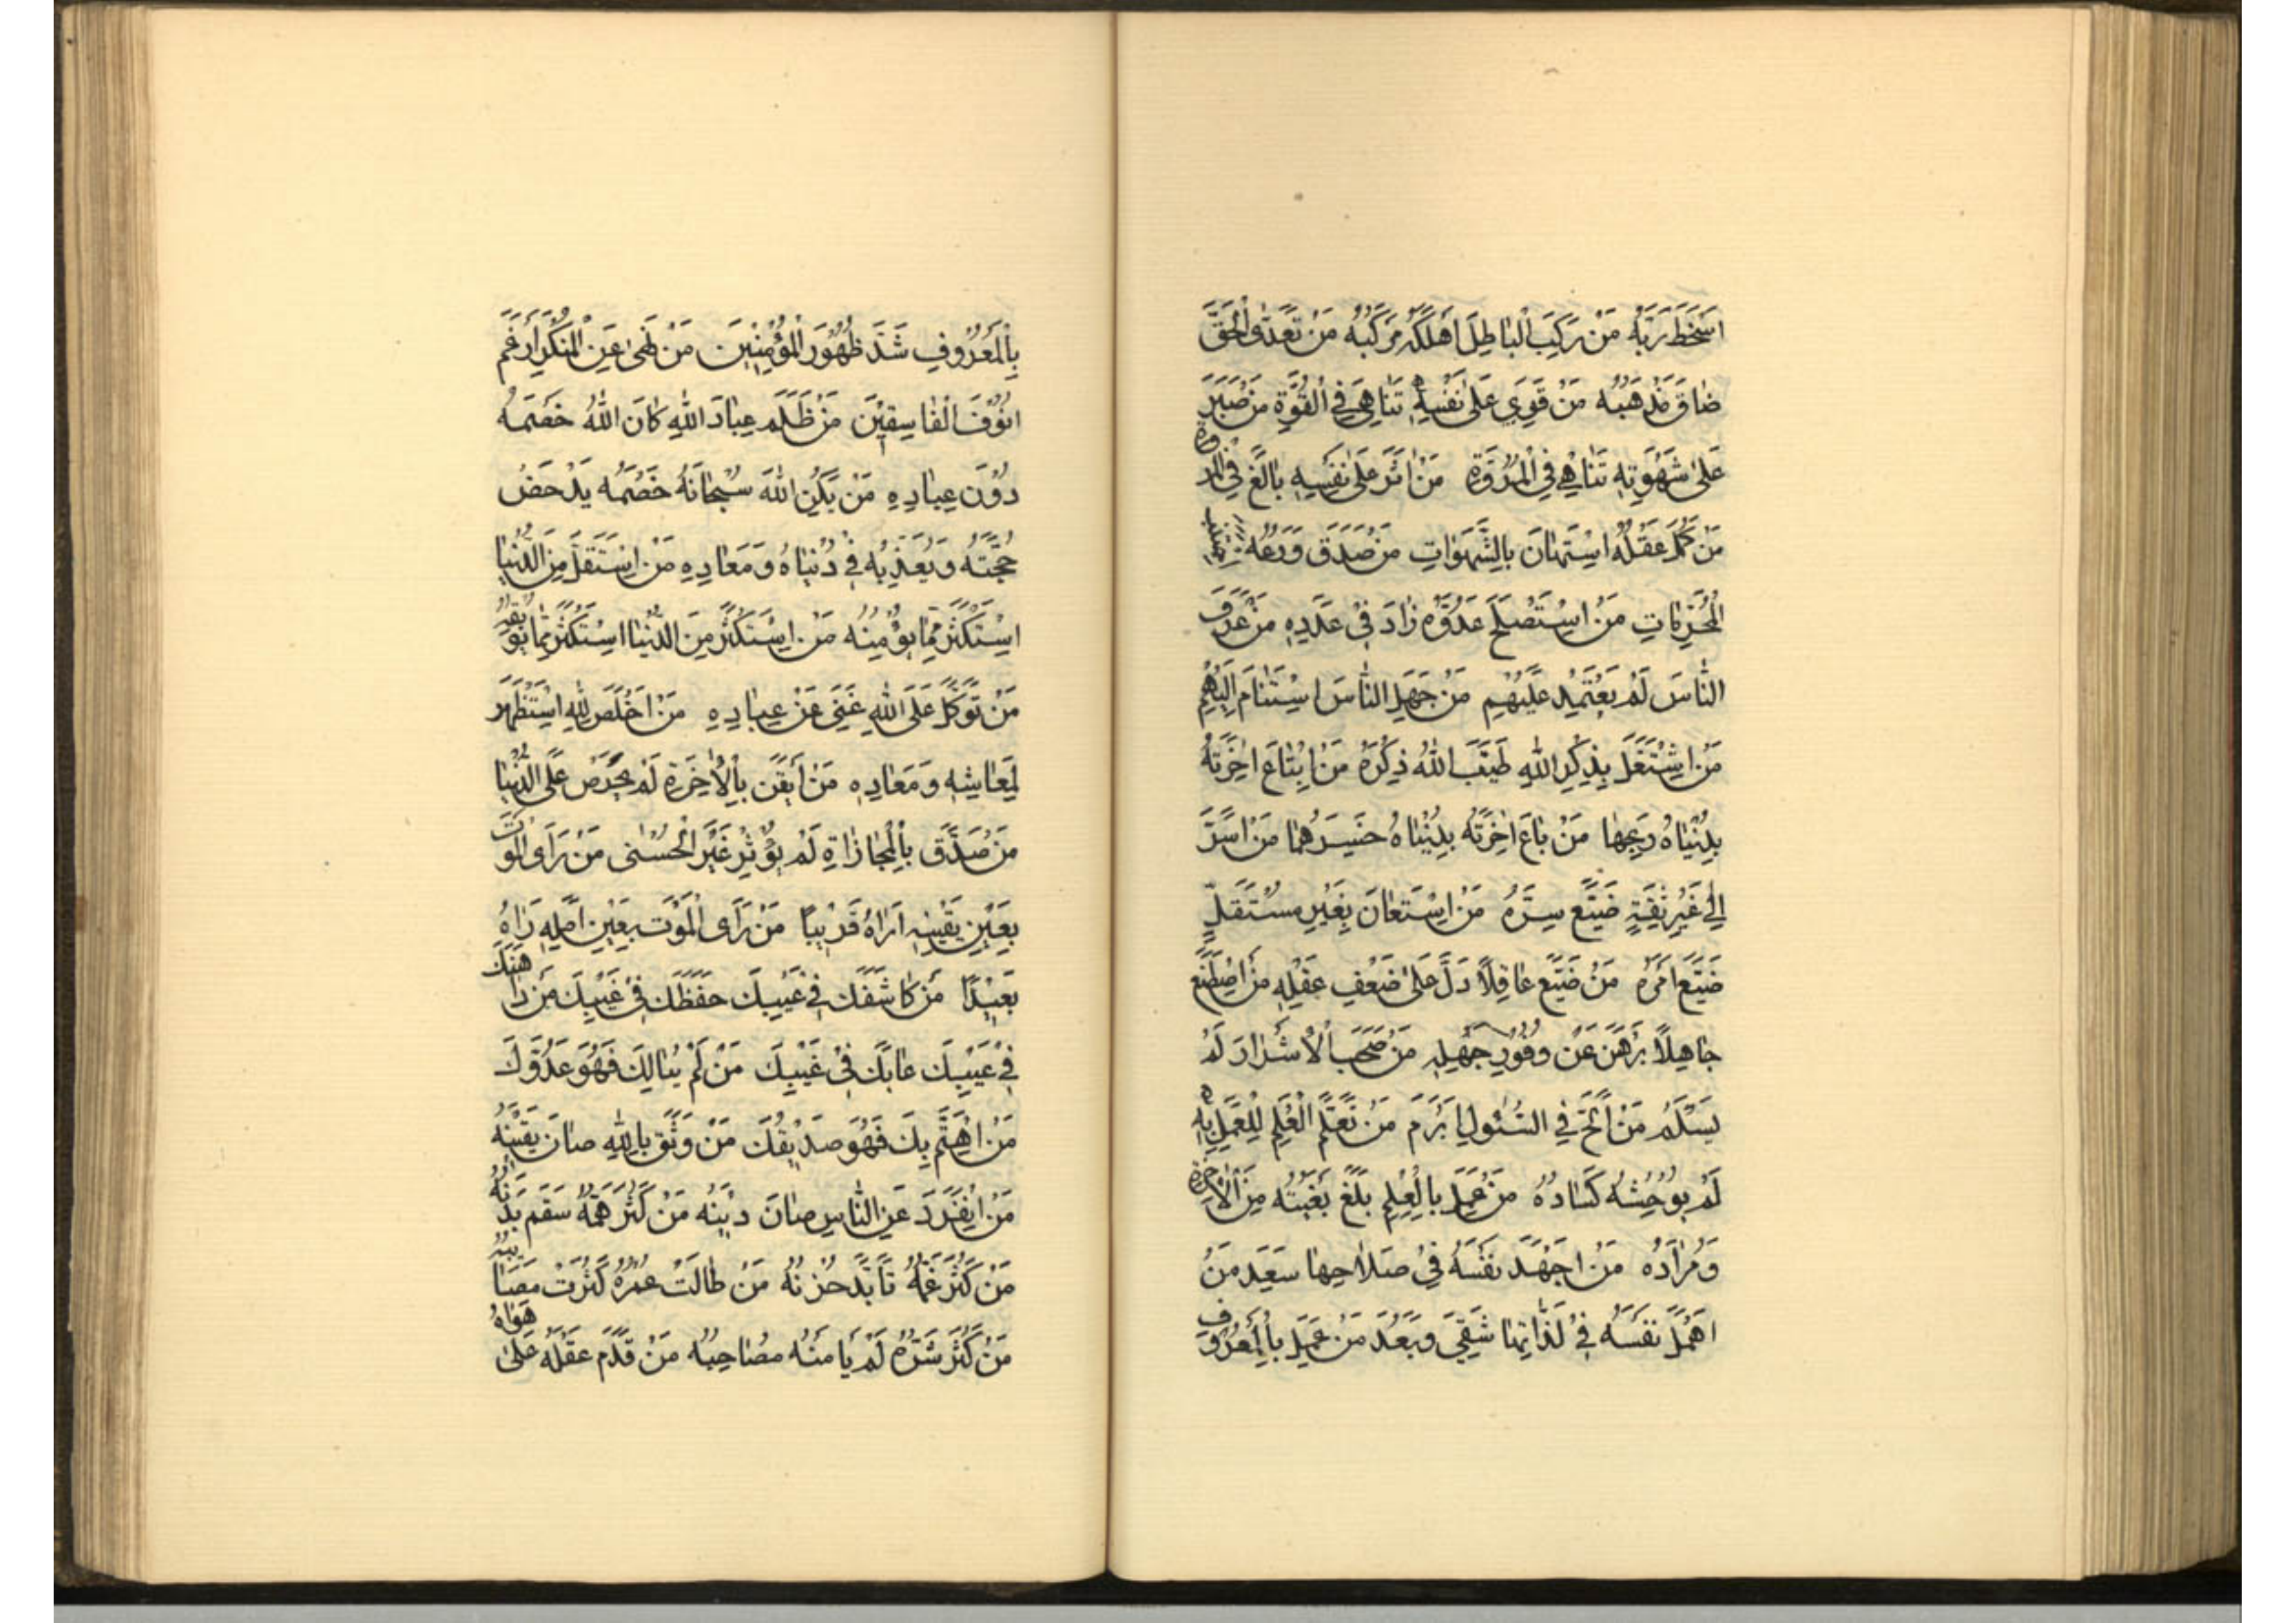 اَسْخَطَ رَبَّهُ مَنْ رَكِبَ الْبَاطِلَ اَهْلَكَهُ مَرْكَبُهُ مَنْ تَعَدَّى الْحَقَّ
ضَاقَ مَذْهَبُهُ مَنْ قَوِيَ عَلَى نَفْسِهِ تَنَاهَى فِي الْقُوَّةِ مَنْ صَبَرَ
عَلَى شَهْوَتِهِ تَنَاهَى فِي الْمُرُوَّةِ مَنْ اٰثَرَ عَلَى نَفْسِهِ بَالَغَ فِي الْمُرُوَّةِ
مَنْ كَمُلَ عَقْلُهُ اسْتَهَانَ بِالشَّهَوَاتِ مَنْ صَدَقَ وَرَعُهُ اجْتَنَبَ
الْمُحَرَّمَاتِ مَنِ اسْتَصْلَحَ عَدُوَّهُ زَادَ فِي عَدَدِهِ مَنْ عَرَفَ
النَّاسَ لَمْ يَعْتَمِدْ عَلَيْهِمْ مَنْ جَهِلَ النَّاسَ اسْتَنَامَ اِلَيْهِمْ
مَنِ اشْتَغَلَ بِذِكْرِ اللّٰهِ طَيَّبَ اللّٰهُ ذِكْرَهُ مَنِ ابْتَاعَ اٰخِرَتَهُ
بِدُنْيَاهُ رَبِحَهَا مَنْ بَاعَ اٰخِرَتَهُ بِدُنْيَاهُ خَسِرَهُمَا مَنْ اَسَرَّ
اِلَى غَيْرِ ثِقَةٍ ضَيَّعَ سِرَّهُ مَنِ اسْتَعَانَ بِغَيْرِ مُسْتَقِلٍّ
ضَيَّعَ اَمْرَهُ مَنْ ضَيَّعَ عَاقِلًا دَلَّ عَلَى ضَعْفِ عَقْلِهِ مَنِ اصْطَنَعَ
جَاهِلًا بَرْهَنَ عَنْ وُفُورِ جَهْلِهِ مَنْ صَحِبَ الْاَشْرَارَ لَمْ
يَسْلَمْ مَنْ اَلَحَّ فِي السُّئُولِ اَبْرَمَ مَنْ تَعَلَّمَ الْعِلْمَ لِلْعَمَلِ بِهِ
لَمْ يُوحِشْهُ كَسَادُهُ مَنْ عَمِلَ بِالْعِلْمِ بَلَغَ بُغْيَتَهُ مِنَ الْاٰخِرَةِ
وَمُرَادَهُ مَنْ اَجْهَدَ نَفْسَهُ فِي صَلَاحِهَا سَعِدَ مَنْ
اَهْمَلَ نَفْسَهُ فِي لَذَّاتِهَا شَقِيَ وَبَعُدَ مَنْ عَمِلَ بِالْمَعْرُوفِ
بِالْمَعْرُوفِ شَدَّ ظُهُورَ الْمُؤْمِنِينَ مَنْ نَهَى عَنِ الْمُنْكَرِ اَرْغَمَ
اُنُوفَ الْفَاسِقِينَ مَنْ ظَلَمَ عِبَادَ اللّٰهِ كَانَ اللّٰهُ خَصْمَهُ
دُونَ عِبَادِهِ مَنْ يَكُنِ اللّٰهُ سُبْحَانَهُ خَصْمَهُ يَدْحَضْ
حُجَّتَهُ وَيُعَذِّبْهُ فِي دُنْيَاهُ وَمَعَادِهِ مَنِ اسْتَقَلَّ مِنَ الدُّنْيَا
اسْتَكْثَرَ مِمَّا يُؤْمِنُهُ مَنِ اسْتَكْثَرَ مِنَ الدُّنْيَا اسْتَكْثَرَ مِمَّا يُوبِقُهُ
مَنْ تَوَكَّلَ عَلَى اللّٰهِ غَنِيَ عَنْ عِبَادِهِ مَنْ اَخْلَصَ لِلّٰهِ اسْتَظْهَرَ
لِمَعَاشِهِ وَمَعَادِهِ مَنْ اَيْقَنَ بِالْاٰخِرَةِ لَمْ يَحْرِصْ عَلَى الدُّنْيَا
مَنْ صَدَّقَ بِالْمُجَازَاةِ لَمْ يُؤْثِرْ غَيْرَ الْحُسْنَى مَنْ رَاَى الْمَوْتَ
بِعَيْنِ يَقِينِهِ اَرَاهُ قَرِيبًا مَنْ رَاَى الْمَوْتَ بِعَيْنِ اَمَلِهِ رَاٰهُ
بَعِيدًا مَنْ كَاشَفَكَ فِي عَيْبِكَ حَفِظَكَ فِي غَيْبِكَ مَنْ دَاهَنَكَ
فِي عَيْبِكَ عَابَكَ فِي غَيْبِكَ مَنْ لَمْ يُبَالِكَ فَهُوَ عَدُوُّكَ
مَنِ اهْتَمَّ بِكَ فَهُوَ صَدِيقُكَ مَنْ وَثِقَ بِاللّٰهِ صَانَ يَقِينَهُ
مَنِ انْفَرَدَ عَنِ النَّاسِ صَانَ دِينَهُ مَنْ كَثُرَ هَمُّهُ سَقِمَ بَدَنُهُ
مَنْ كَثُرَ غَمُّهُ تَاَبَّدَ حُزْنُهُ مَنْ طَالَتْ عُمْرُهُ كَثُرَتْ مَصَائِبُهُ
مَنْ كَثُرَ شَرُّهُ لَمْ يَأْمَنْهُ مُصَاحِبُهُ مَنْ قَدَّمَ عَقْلَهُ عَلَى هَوَاهُ